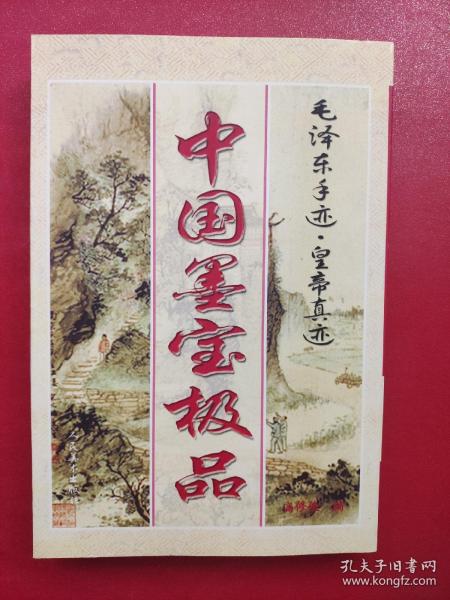 毛泽东手迹·皇帝真迹
中国墨宝极品
人民美术出版社
孔夫子旧书网
www.kongfz.com